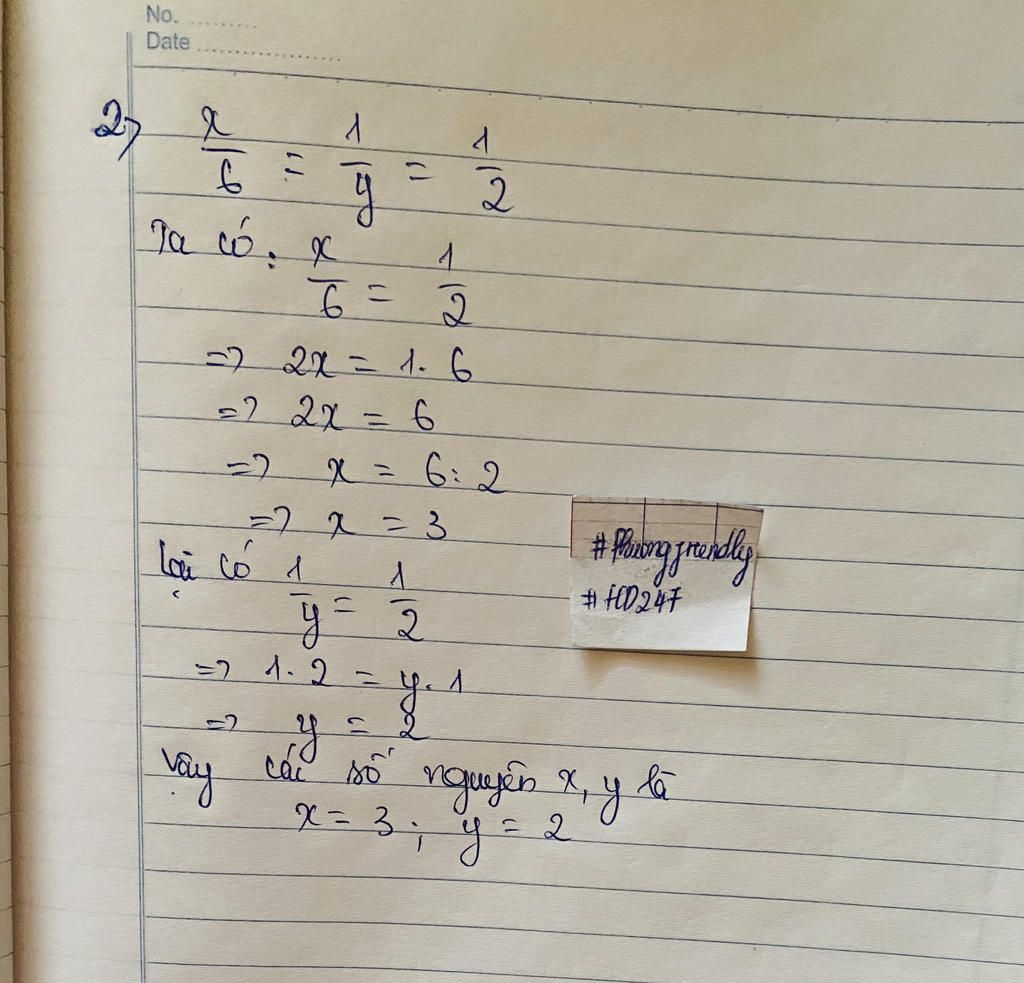 No. .........
Date ...................
2) x/6 = 1/y = 1/2
Ta có: x/6 = 1/2
=> 2x = 1. 6
=> 2x = 6
=> x = 6: 2
=> x = 3
Lại có 1/y = 1/2
=> 1. 2 = y. 1
=> y = 2
Vậy các số nguyên x, y là
x = 3 ; y = 2
#Phuongfriendly
#HD247